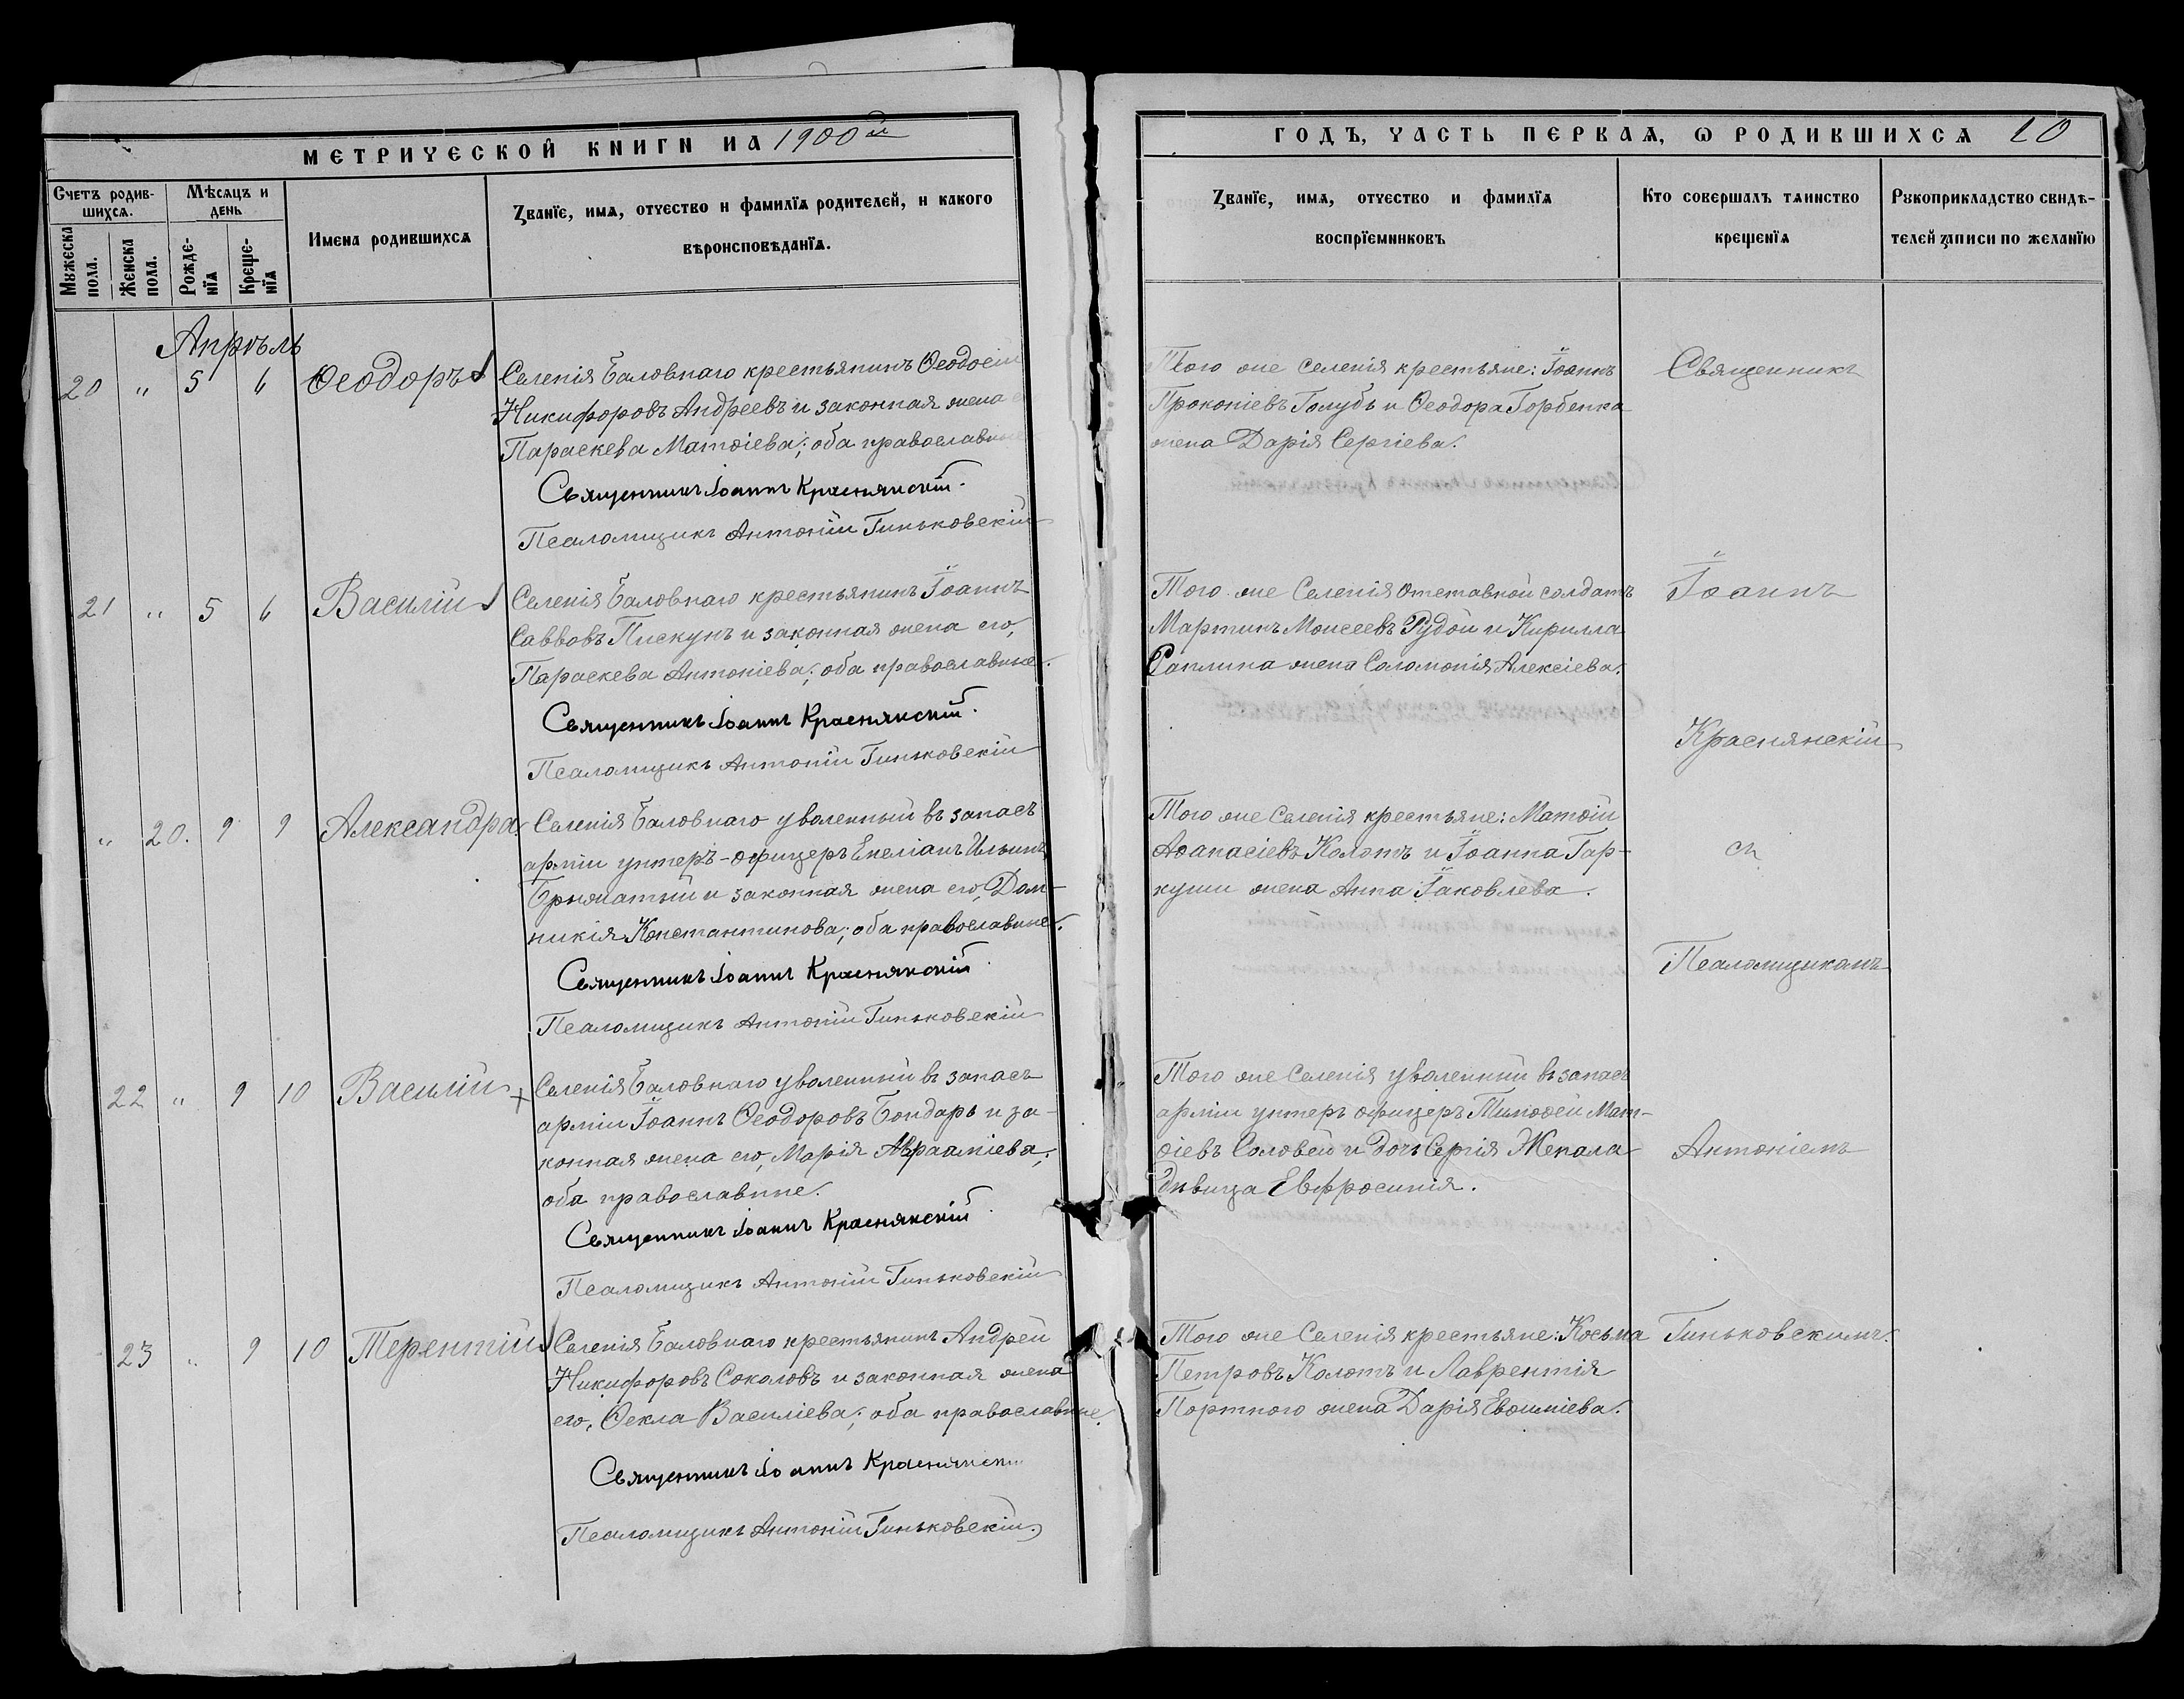 МЕТРИЧЕСКОЙ КНИГИ НА 1900й
Счетъ родив-
шихся.
Мѣсяцъ и
день
Мужеска
пола.
Женска
пола.
Рожде-
нїя
Креще-
нїя
Имена родившихся
Званїе, имя, отчество и фамилїя родителей, и какого
вѣроисповѣданїя.
Апрѣль
20 " 5 6 Ѳеодоръ
Селенія Баловнаго крестьянинъ Ѳеодосій
Никифоровъ Андреевъ и законная жена
Параскева Матѳіева; оба православные
Священникъ Іоаннъ Краснянскій.
Псаломщикъ Антоній Гиньковскій
21 " 5 6 Василій
Селенія Баловнаго крестьянинъ Іоаннъ
Саввовъ Пискунъ и законная жена его,
Параскева Антоніева; оба православные.
Священникъ Іоаннъ Краснянскій.
Псаломщикъ Антоній Гиньковскій
" 20. 9 9 Александра
Селенія Баловнаго уволенный въ запасъ
арміи унтеръ-офицеръ Емеліанъ Ильинъ
и законная жена его, Дом-
никія Константинова; оба православные.
Священникъ Іоаннъ Краснянскій.
Псаломщикъ Антоній Гиньковскій
22 " 9 10 Василій
Селенія Баловнаго уволенный въ запасъ
арміи Іоаннъ Ѳеодоровъ Бондарь и за-
конная жена его, Марія Авраамiева;
оба православные.
Священникъ Іоаннъ Краснянскій
Псаломщикъ Антоній Гиньковскій
23 " 9 10 Терентій
Селенія Баловнаго крестьянинъ Андрей
Никифоровъ Соколовъ и законная жена
его, Ѳекла Василіева; оба православные.
Священникъ Іоаннъ Краснянскій
Псаломщикъ Антоній Гиньковскій.
ГОДЪ, ЧАСТЬ ПЕРВАЯ, Ѡ РОДИВШИХСЯ 10
Званїе, имя, отчество и фамилїя
воспрїемниковъ
Кто совершалъ таинство
крещенїя
Рукоприкладство свидѣ-
телей записи по желанїю
Того же селенія крестьяне: Іоаннъ
Прокопіевъ Голубь и Ѳеодора Горбенка
жена Дарія Сергіева.
Того же Селенія отставной солдатъ
Мартинъ Моисеевъ Рудой и Кирилла
Саплина жена Соломонія Алексіева.
Того же Селенія крестьяне: Матѳій
Аѳанасіевъ Колотъ и Іоанна Гар-
куши жена Анна Іаковлева.
Того же Селенія уволенный въ запасъ
арміи унтеръ офицеръ Тимоѳей Мат-
ѳіевъ Соловей и дочь Сергія Жепала
дѣвица Евфросинія.
Того же Селенія крестьяне: Косьма
Петровъ Колотъ и Лаврентія
Портного жена Дарія Евѳиміева.
Священникъ
Іоаннъ
Краснянскій
съ
Псаломщикомъ
Антоніемъ
Гиньковскимъ.